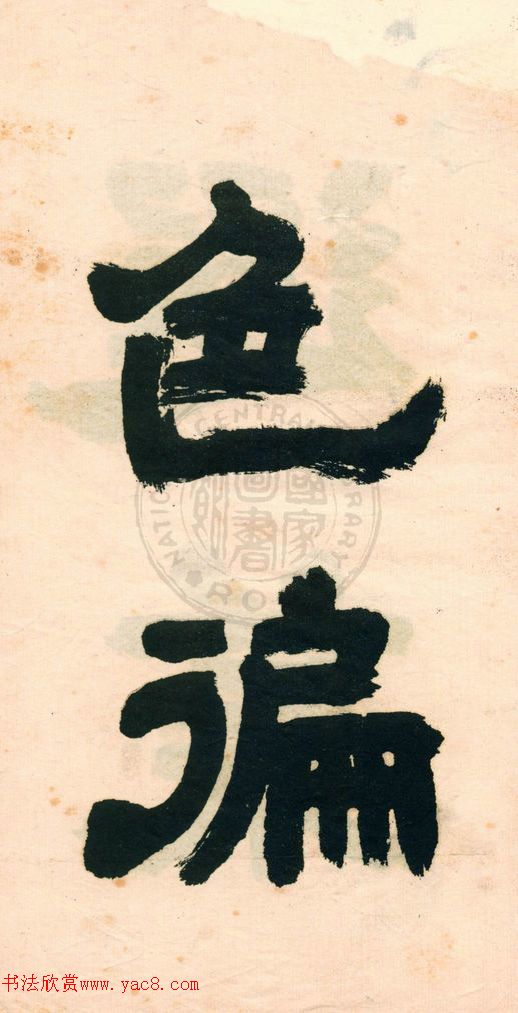 色
徧
國家圖書館
NATIONAL CENTRAL LIBRARY
书法欣赏www.yac8.com